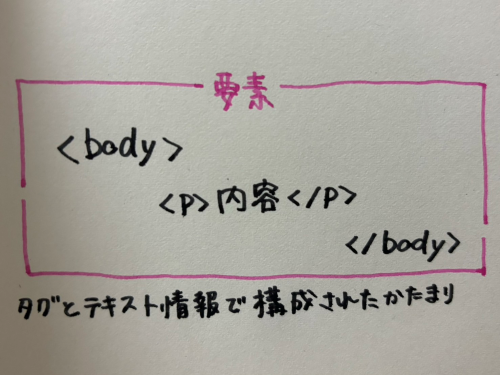 要素
<body>
<p>内容</p>
</body>
タグとテキスト情報で構成されたかたまり